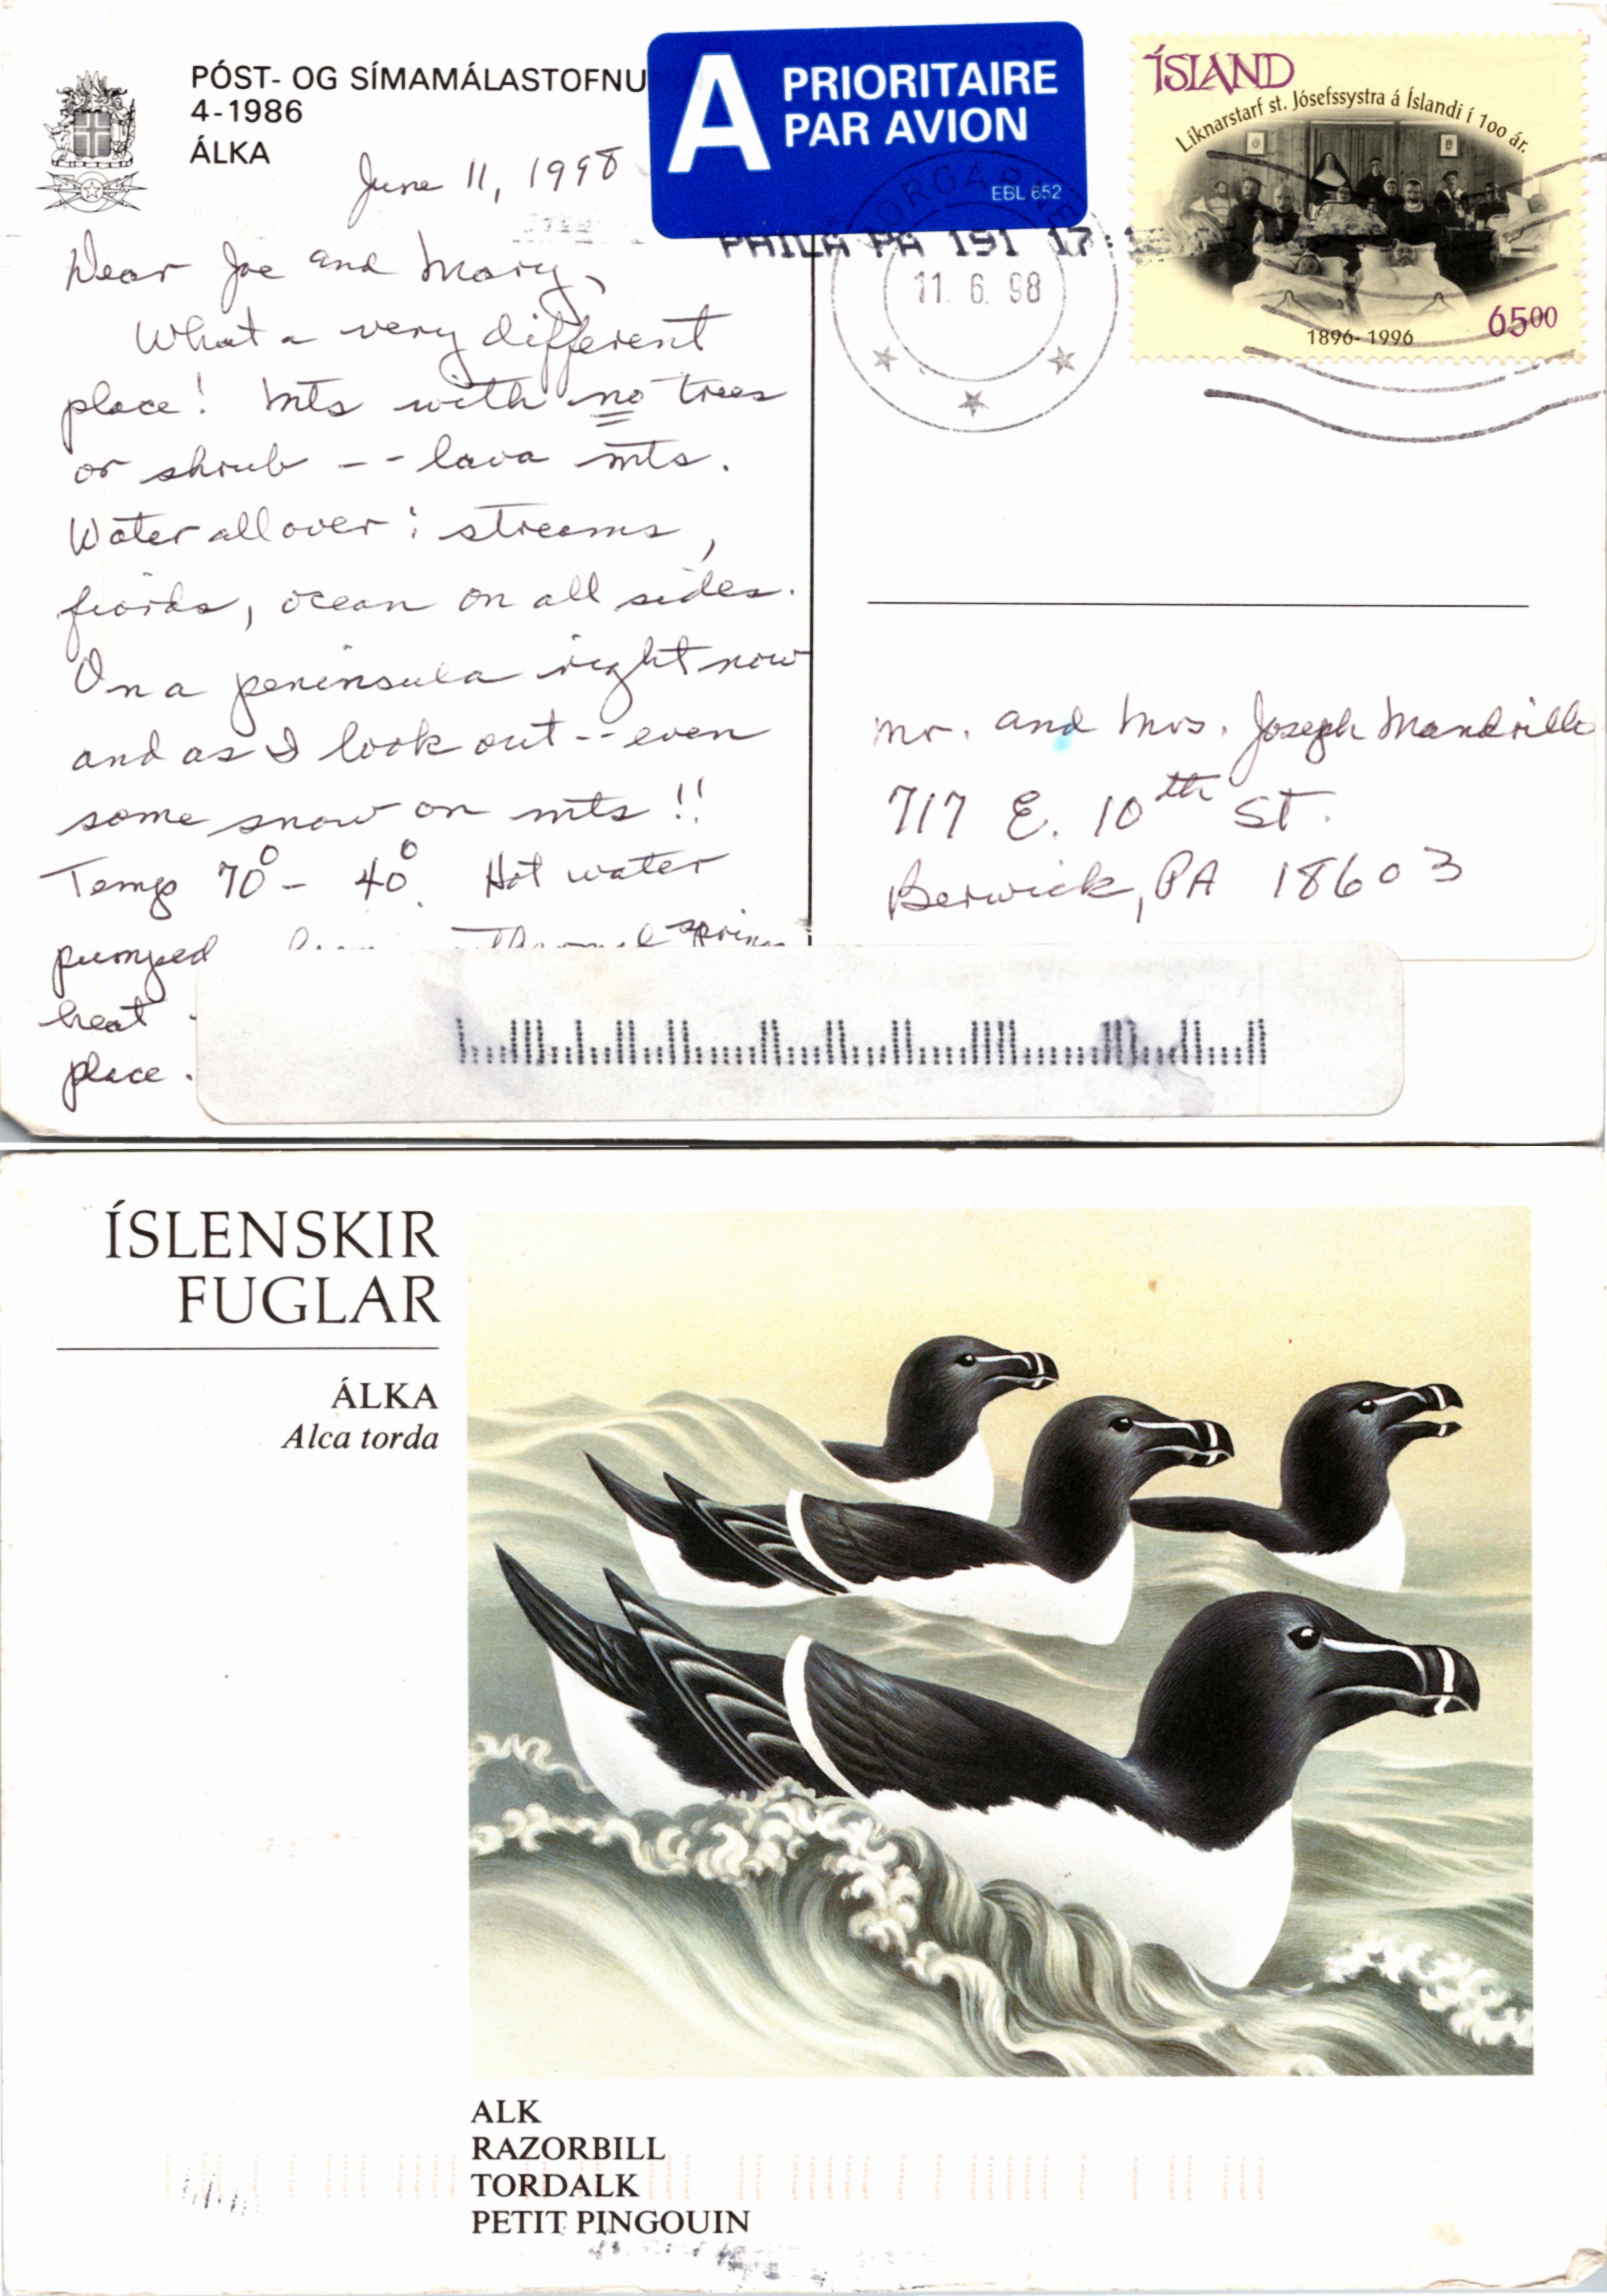 PÓST- OG SÍMAMÁLASTOFNU
4-1986
ÁLKA
A PRIORITAIRE
PAR AVION
EBL 652
ÍSLAND
Líknarstarf st. Jósefssystra á Íslandi í 100 ár.
1896-1996
6500
PHILA PA 191 17:
11.6.98
June 11, 1998
Dear Joe and Mary,
What a very different
place! Mts with no trees
or shrub -- lava mts.
Water all over: streams,
fiords, ocean on all sides.
On a peninsula right now
and as I look out -- even
some snow on mts!!
Temp 70° - 40°. Hot water
pumped Thermal springs
heat
place.
Mr. and Mrs. Joseph Mandrillo
717 E. 10th St.
Berwick, PA 18603
ÍSLENSKIR
FUGLAR
ÁLKA
Alca torda
ALK
RAZORBILL
TORDALK
PETIT PINGOUIN